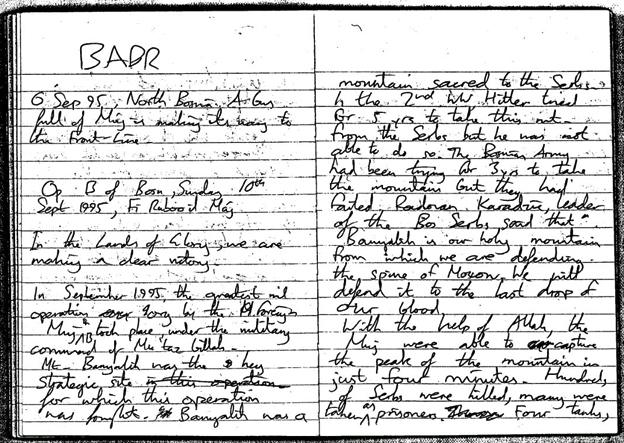 BADR
6 Sep 95, North Bosnia, A bus
full of Muj is making its way to
the Front-Line.
Op B of Bosn, Sunday 10th
Sept 1995, Fi Raboo'il Maj
In the Lands of Glory, we are
making a clear victory.
In September 1995, the greatest mil
operation by the foreign
Muj AB took place under the military
command of Mu'taz Gillah.
Mt. Banyalih was the key
strategic site in this operation
for which this operation
was fought. Banyalih was a
mountain sacred to the Serbs.
In the 2nd WW Hitler tried
for 5 yrs to take this mt.
from the Serbs but he was not
able to do so. The Bosnian Army
had been trying for 3 yrs to take
the mountain but they had
failed. Radovan Karadzic, leader
of the Bos Serbs said that "
Banyalih is our holy mountain
from which we are defending
the spine of Moscow. We will
defend it to the last drop of
our blood.
With the help of Allah, the
Muj were able to capture
the peak of the mountain in
just four minutes. Hundreds
of Serbs were killed, many were
taken as prisoners. Four tanks,